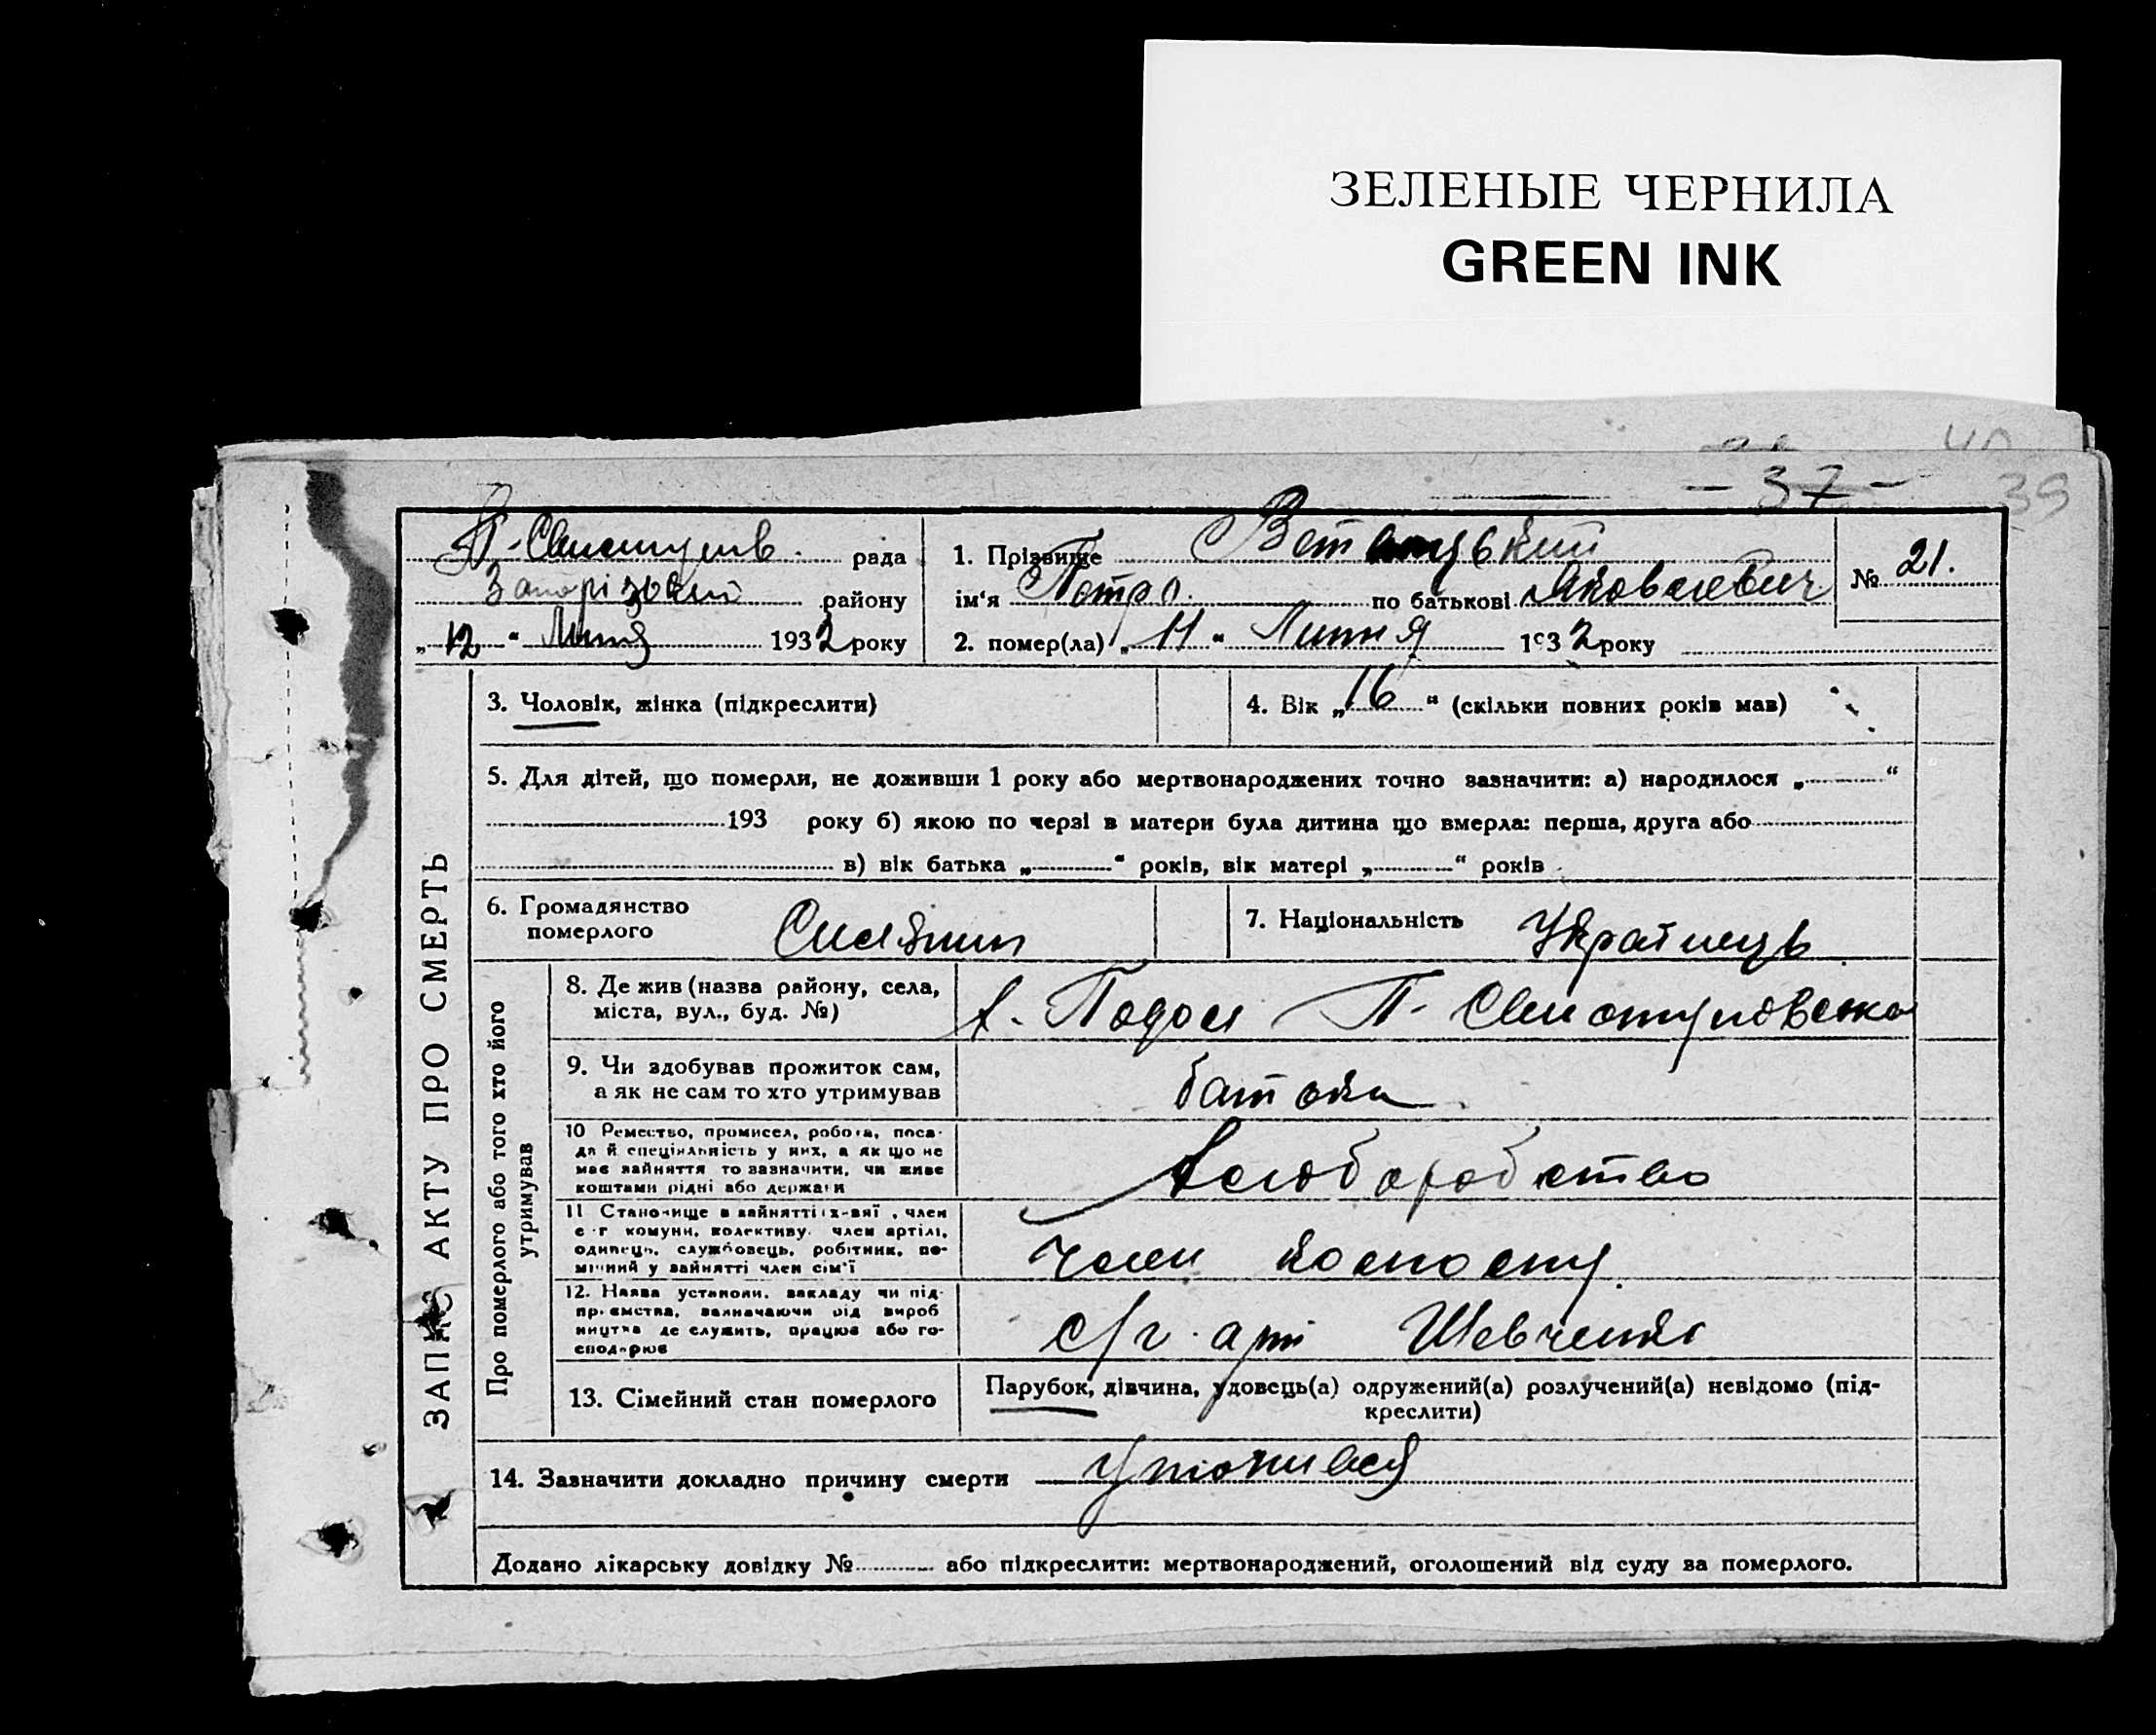 ЗЕЛЕНЫЕ ЧЕРНИЛА
GREEN INK
- 37 - 39
рада
району
„ 12 “ Липня 1932 року
1. Прізвище
ім‘я Петро по батькові Яковлевич
№ 21.
2. помер(ла) „ 11 “ Липня 1932 року
3. Чоловік, жінка (підкреслити)
4. Вік „ 16 “ (скільки повних років мав)
5. Для дітей, що померли, не доживши 1 року або мертвонароджених точно зазначити: а) народилося „ “
193 року б) якою по черзі в матери була дитина що вмерла: перша, друга або
в) вік батька „ “ років, вік матері „ “ років
6. Громадянство
померлого
7. Національність Українець
ЗАПИС АКТУ ПРО СМЕРТЬ
Про померлого або того хто його
утримував
8. Де жив (назва району, села,
міста, вул., буд. №)
9. Чи здобував прожиток сам,
а як не сам то хто утримував
батьки
10 Ремество, промисел, робота, поса-
да й спеціяльність у них, а як що не
має зайняття то зазначити, чи живе
коштами рідні або держави
хлюборобство
11 Становище в зайнятті, член
с-г комуни, колективу, член артілі,
одинець, службовець, робітник, по-
мічний у зайнятті член сім‘ї
Член
12. Назва установи, закладу чи під-
приємства, зазначаючи від вироб
ництва де служить, працює або го-
сподарює
с/г. арт Шевченка
13. Сімейний стан померлого
Парубок, дівчина, удовець(а) одружений(а) розлучений(а) невідомо (під-
креслити)
14. Зазначити докладно причину смерти утопився
Додано лікарську довідку № або підкреслити: мертвонароджений, оголошений від суду за померлого.